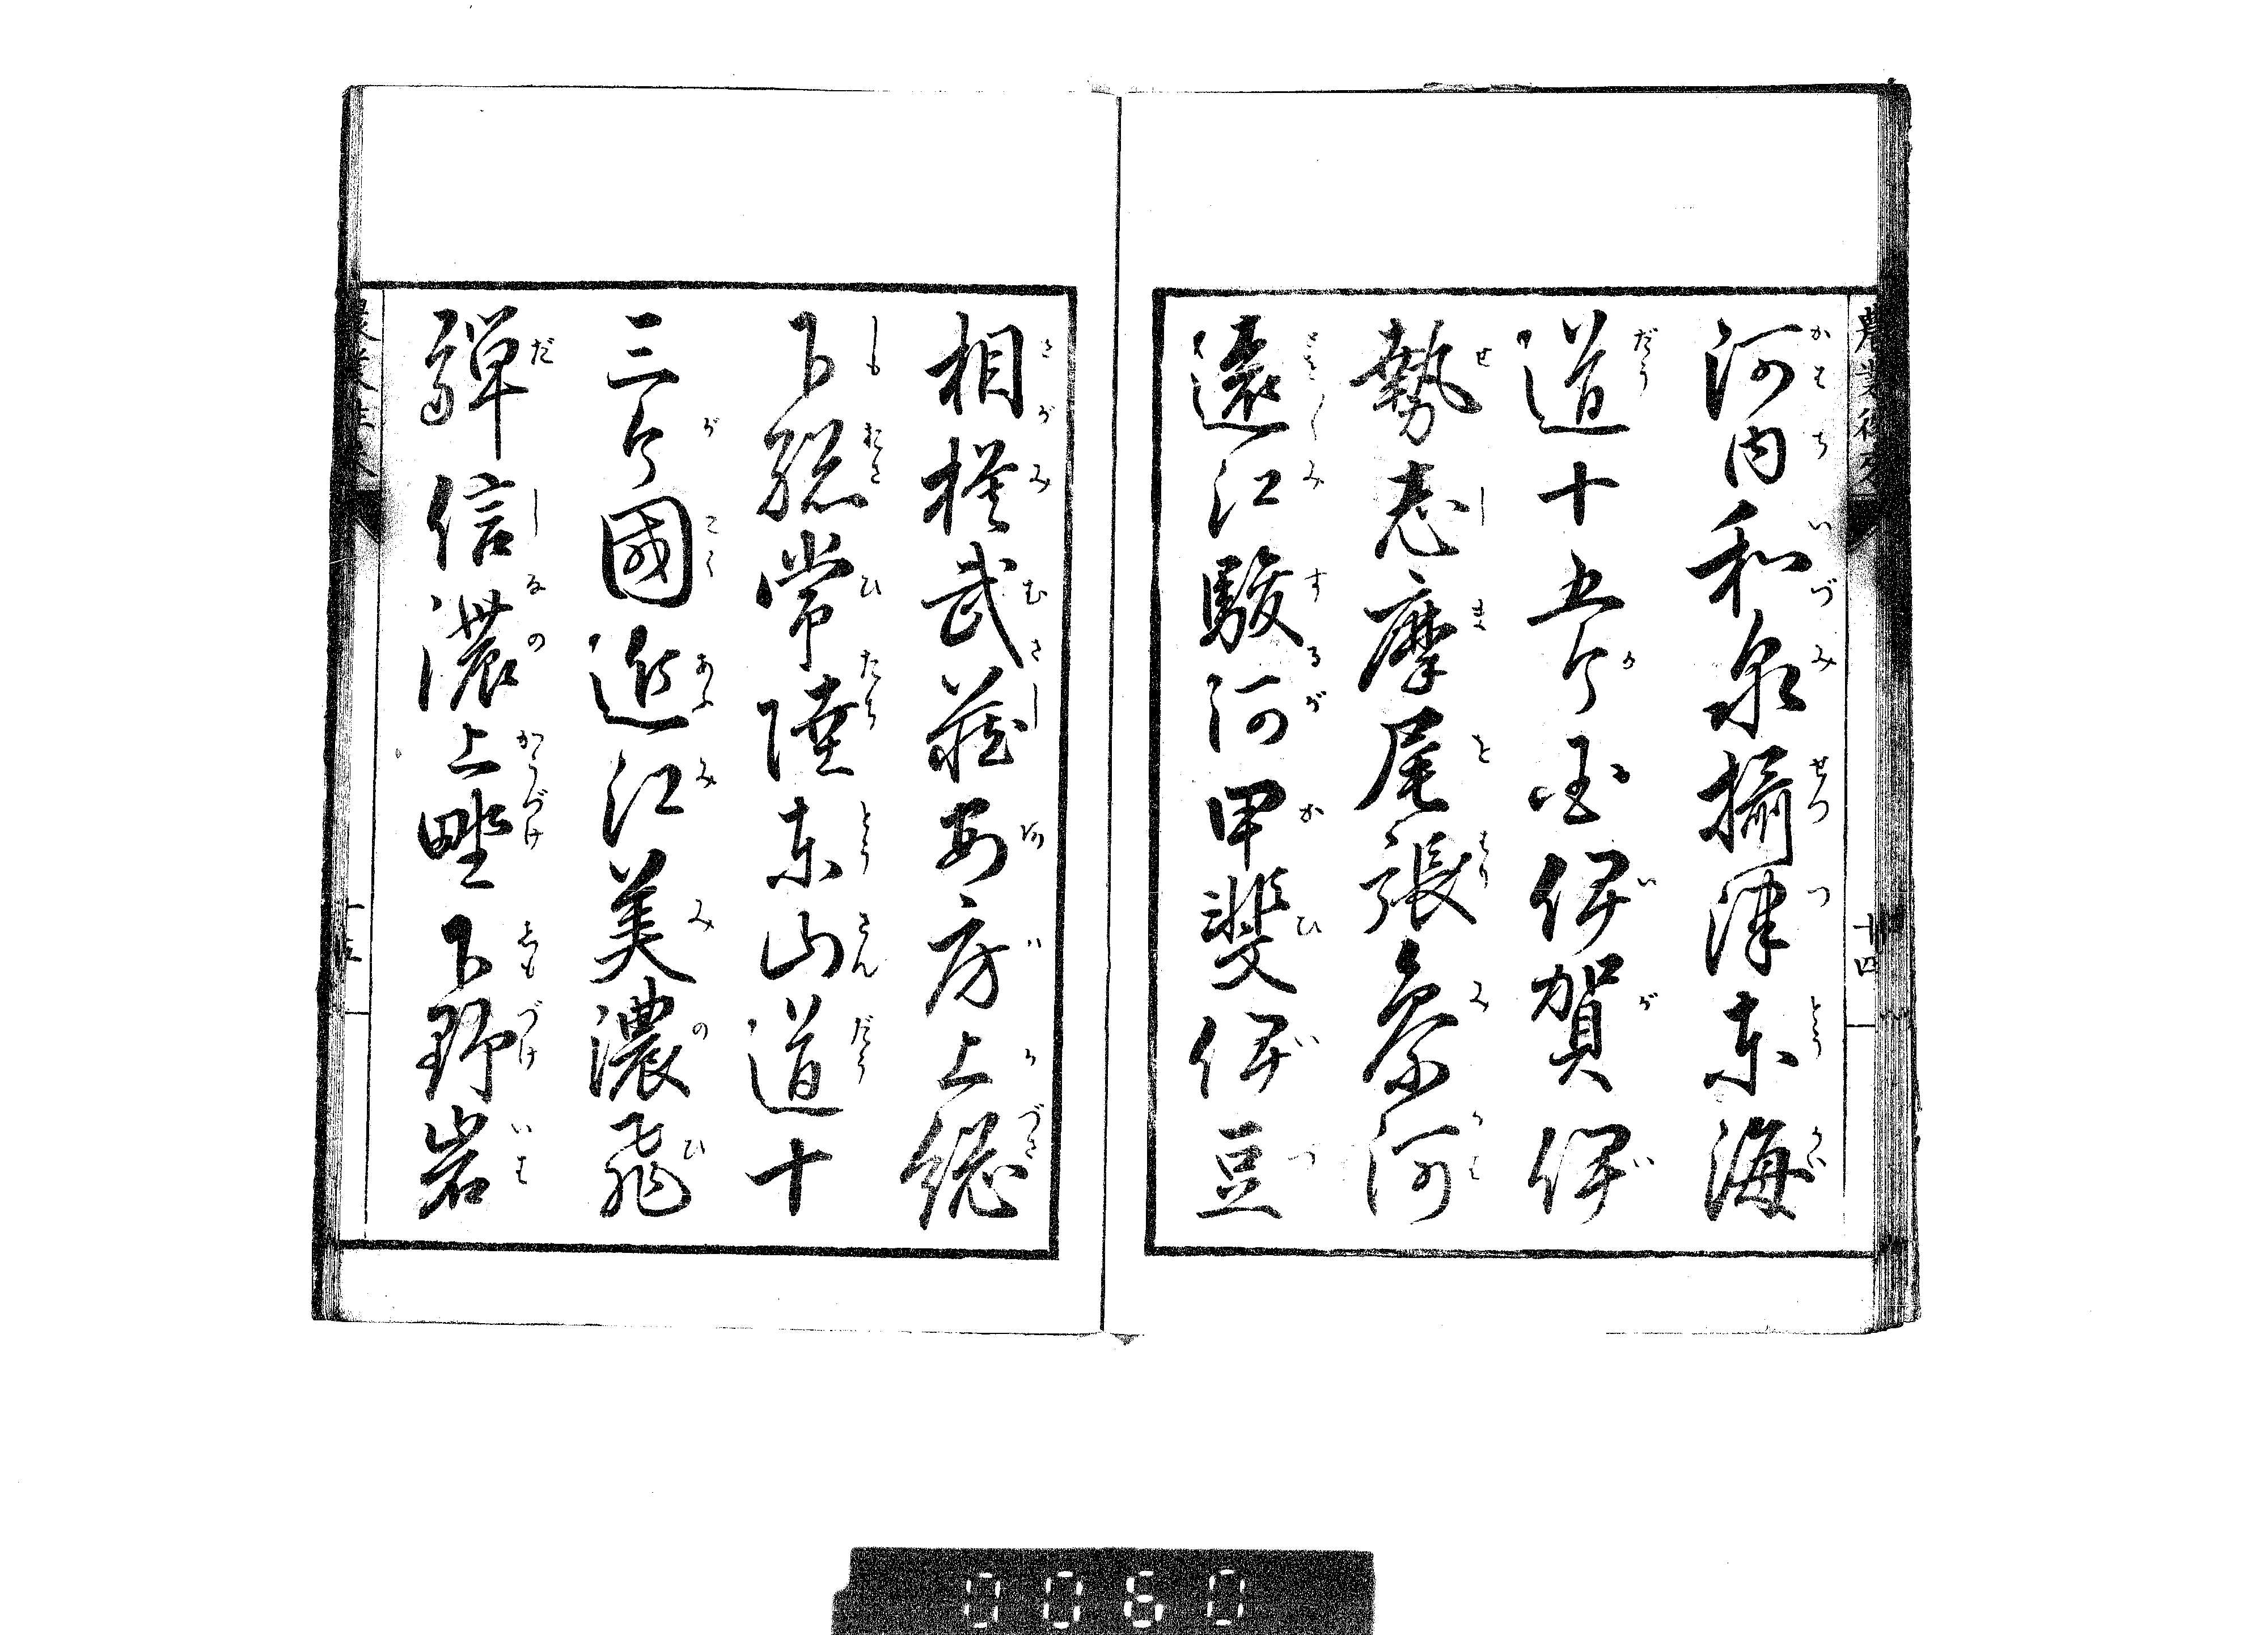 河内和泉攝津東海
道十五ケ国伊賀伊
勢志摩尾張參河
遠江駿河甲斐伊豆
十四
相模武蔵安房上総
下総常陸東山道十
三ケ國近江美濃飛
驒信濃上野下野岩
十五
0060